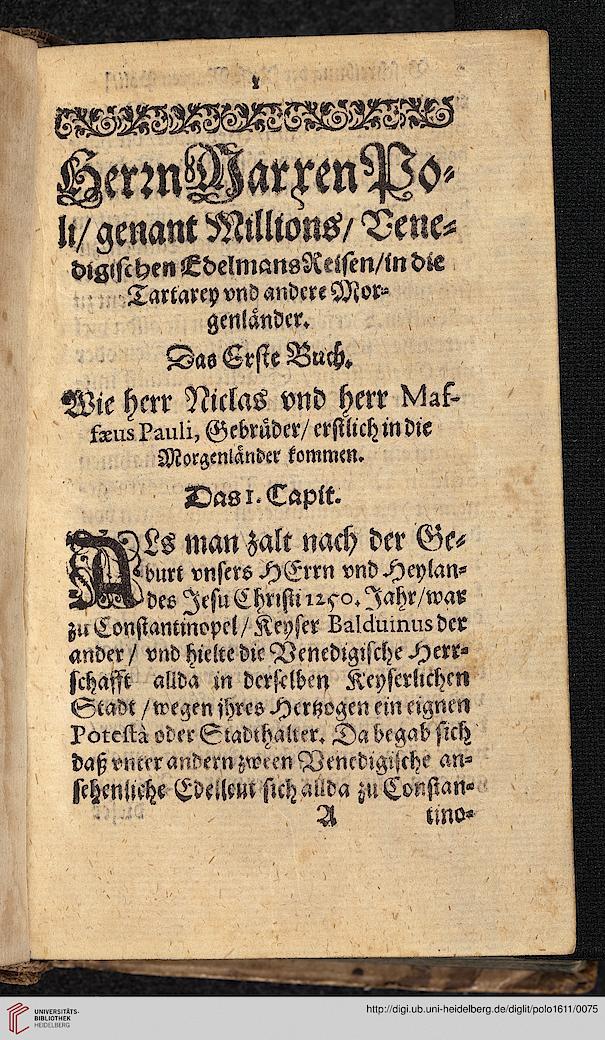 1
Herꝛn Marxen Po-
li/ genant Millions/ Vene-
digischen Edelmans Reisen/ in die
Tartarey vnd andere Mor-
genländer.
Das Erste Buch.
Wie herr Niclas vnd herr Maf-
fæus Pauli, Gebrüder/ erstlich in die
Morgenländer kommen.
Das 1. Capit.
ALs man zalt nach der Ge-
burt vnsers HErrn vnd Heylan-
des Jesu Christi 1250. Jahr/ war
zu Constantinopel/ Keyser Balduinus der
ander/ vnd hielte die Venedigische Herr-
schafft allda in derselben Keyserlichen
Stadt/ wegen ihres Hertzogen ein eignen
Potestà oder Stadthalter. Da begab sich
daß vnter andern zween Venedigische an-
sehenliche Edelleut sich allda zu Constan-
A tino-
UNIVERSITÄTS-
BIBLIOTHEK
HEIDELBERG
http://digi.ub.uni-heidelberg.de/diglit/polo1611/0075